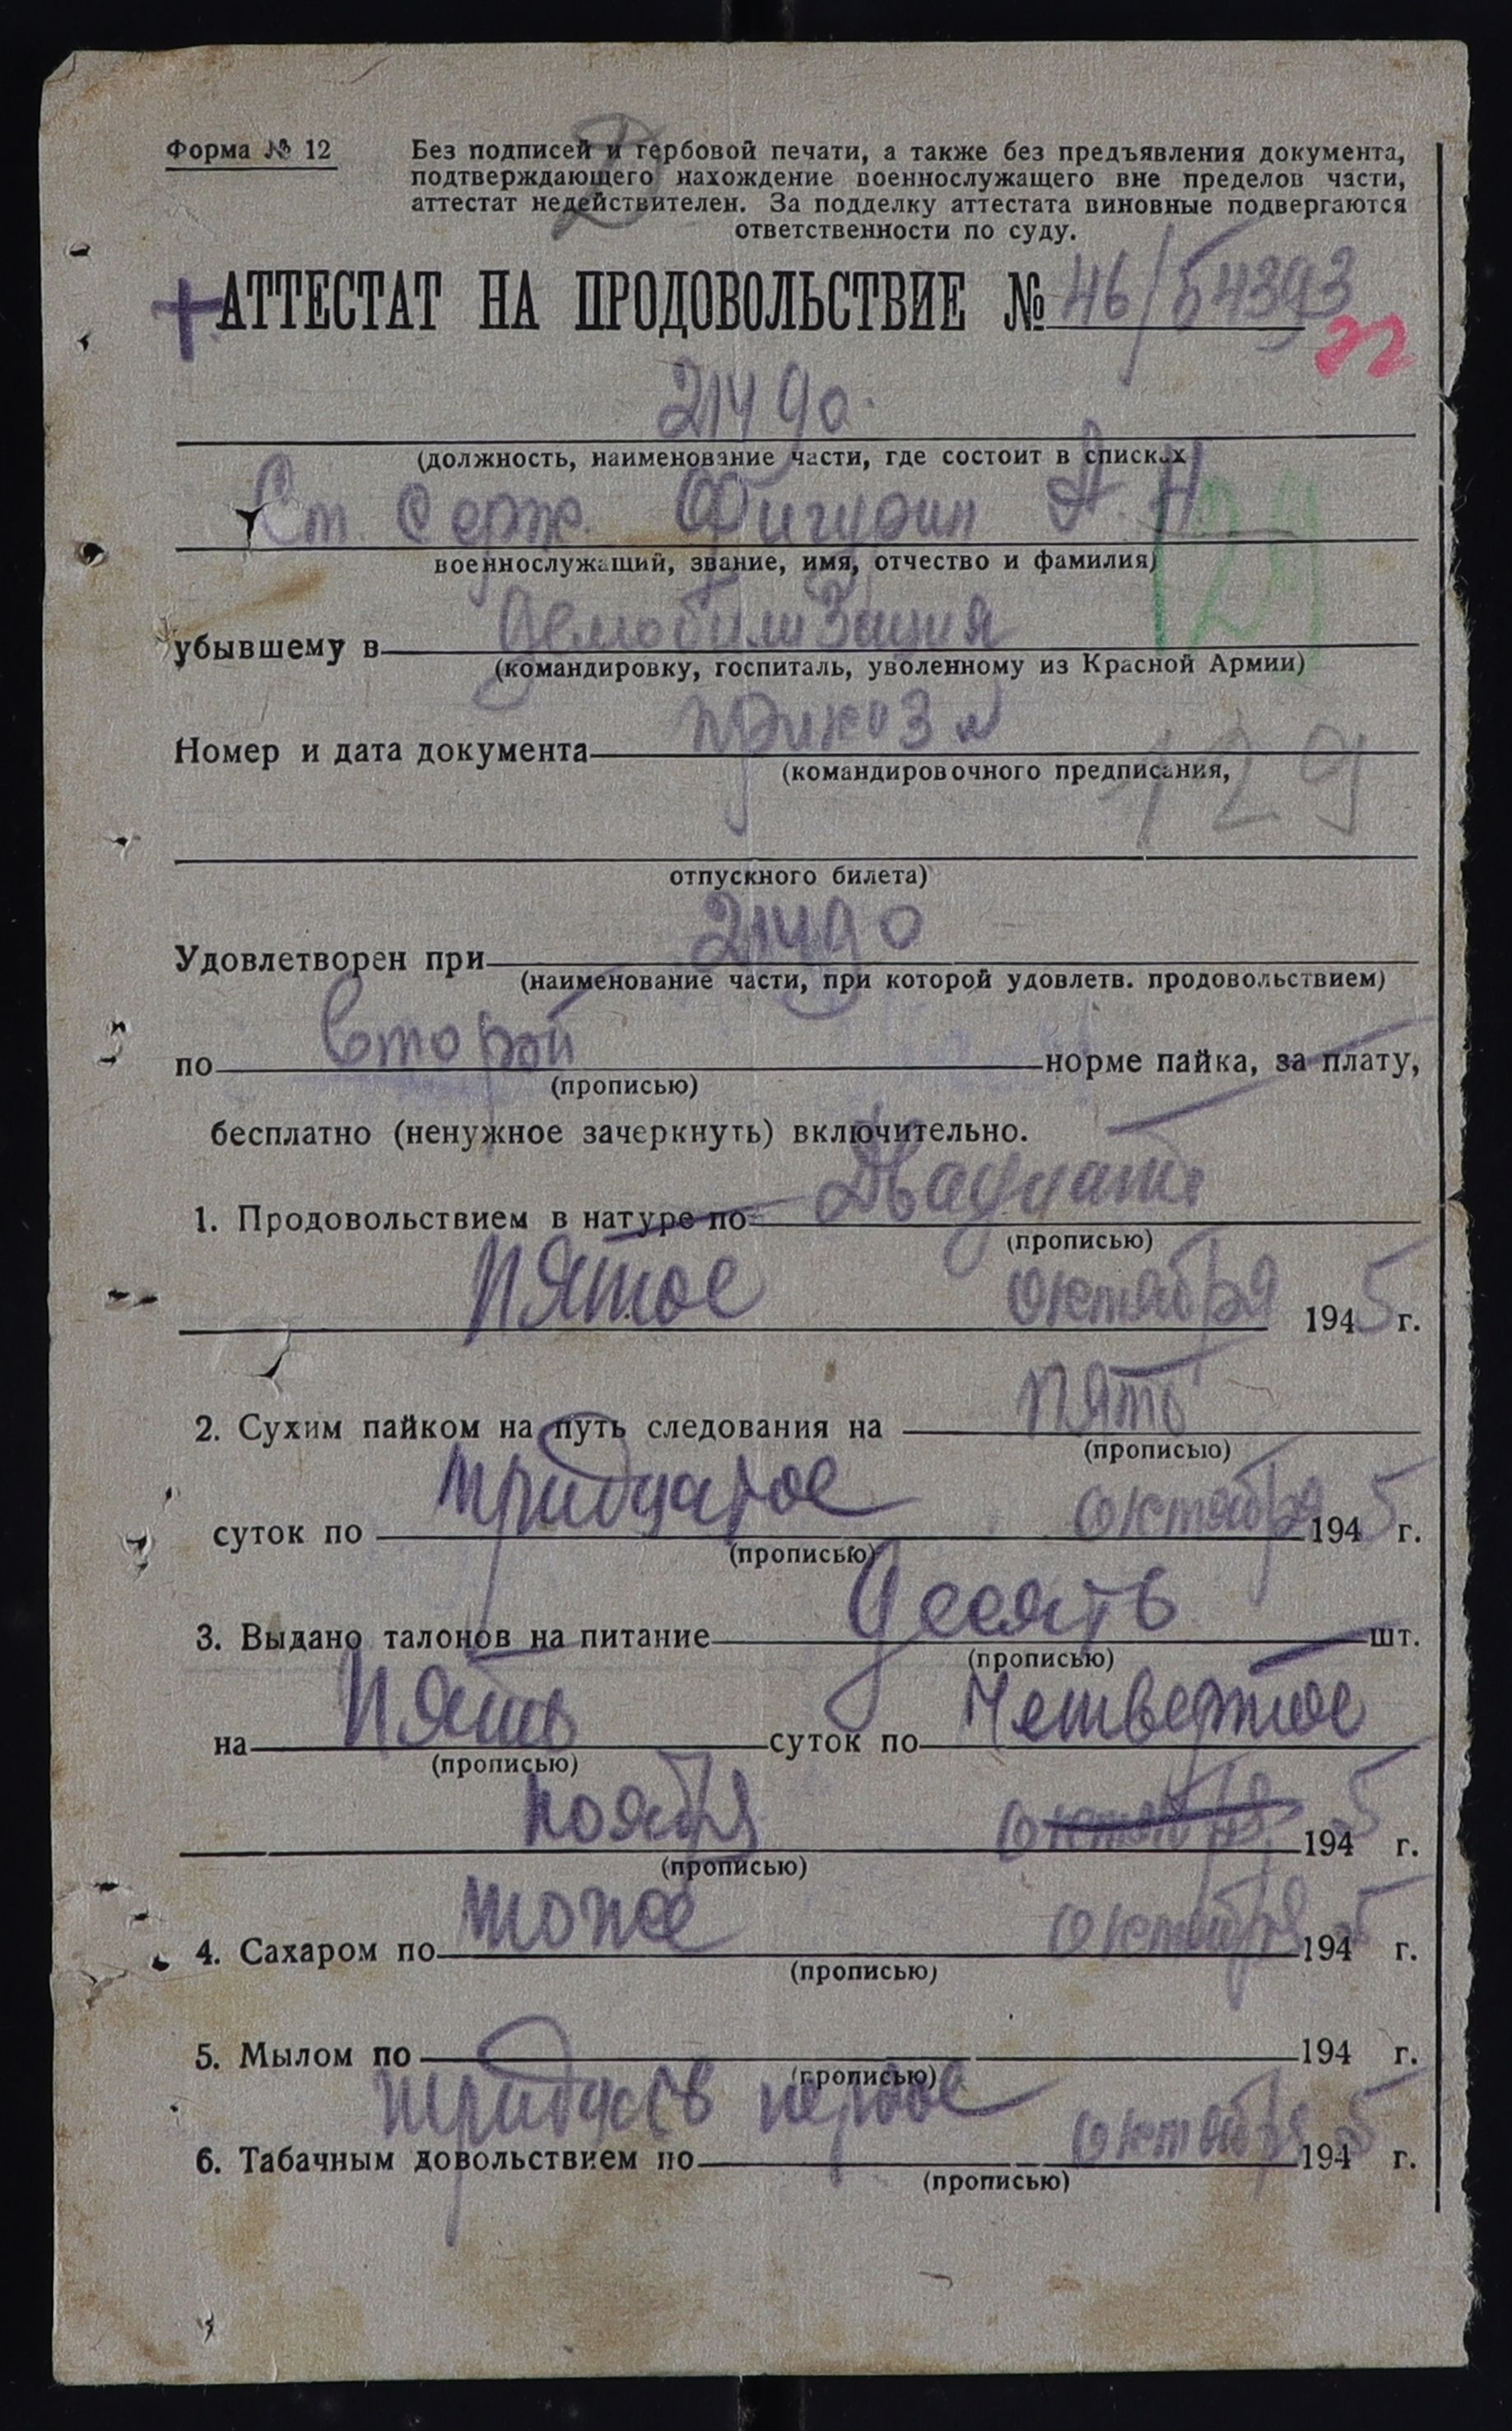 Форма № 12
Без подписей и гербовой печати, а также без предъявления документа,
подтверждающего нахождение военнослужащего вне пределов части,
аттестат недействителен. За подделку аттестата виновные подвергаются
ответственности по суду.
+ АТТЕСТАТ НА ПРОДОВОЛЬСТВИЕ № 46/54393
22
214 до.
(должность, наименование части, где состоит в списках
Ст. Серж. Фигурин А. Н
129
военнослужащий, звание, имя, отчество и фамилия)
убывшему в демобилизация
(командировку, госпиталь, уволенному из Красной Армии)
Номер и дата документа приказ №
(командировочного предписания,
129
отпускного билета)
Удовлетворен при 214 до
(наименование части, при которой удовлетв. продовольствием)
по второй норме пайка, за плату,
(прописью)
бесплатно (ненужное зачеркнуть) включительно.
1. Продовольствием в натуре по Двадцать
(прописью)
пятое октября 1945 г.
2. Сухим пайком на путь следования на пять
(прописью)
суток по тридцатое октября 1945 г.
(прописью)
3. Выдано талонов на питание десять шт.
(прописью)
на пять суток по четвертое
(прописью)
ноября октября 1945 г.
(прописью)
4. Сахаром по тоже октября 1945 г.
(прописью)
5. Мылом по 194 г.
(прописью)
тридцать первое октября
6. Табачным довольствием по 1945 г.
(прописью)